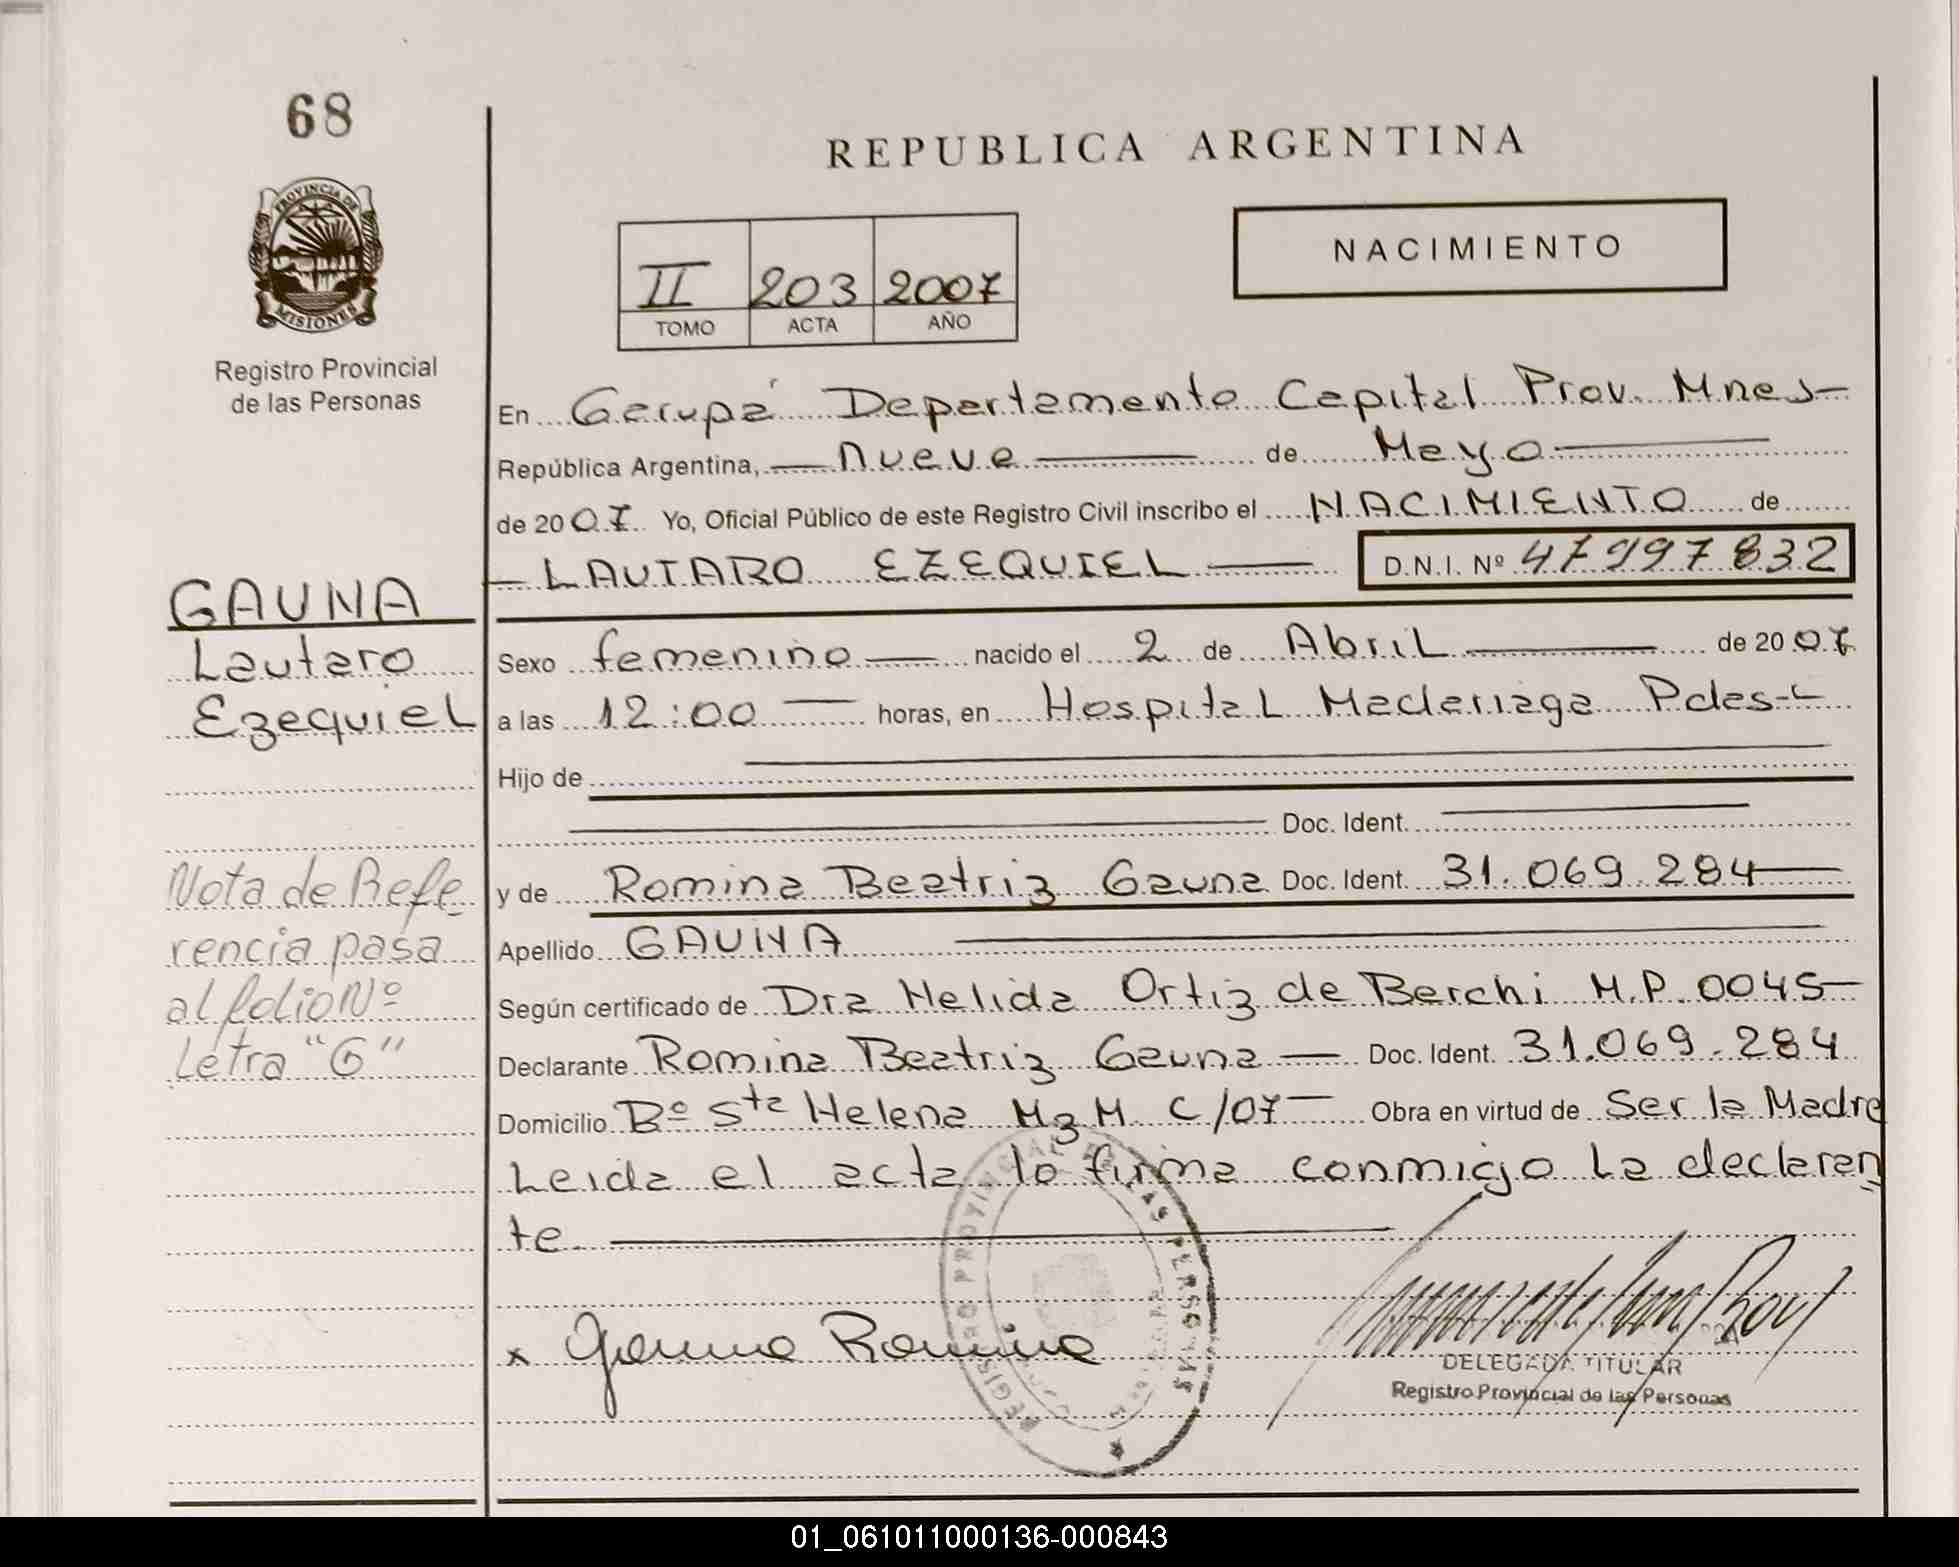 68
REPUBLICA ARGENTINA
PROVINCIA DE
MISIONES
Registro Provincial
de las Personas
NACIMIENTO
II 203 2007
TOMO ACTA AÑO
En Garupá Departamento Capital Prov. Mnes-
República Argentina, nueve de Mayo
de 2007 Yo, Oficial Público de este Registro Civil inscribo el NACIMIENTO de
LAUTARO EZEQUIEL D.N.I. Nº 47997832
GAUNA
Lautaro
Ezequiel
Sexo femenino nacido el 2 de Abril de 2007
a las 12:00 horas, en Hospital Madariaga Pdas-
Hijo de
Doc. Ident.
y de Romina Beatriz Gauna Doc. Ident. 31.069.284
Apellido GAUNA
Según certificado de Dra Nelida Ortiz de Berchi M.P. 0045
Declarante Romina Beatriz Gauna Doc. Ident. 31.069.284
Domicilio Bº Sta Helena Mz M C/07 Obra en virtud de Ser la Madre
Leida el acta lo firma conmigo la declaran
te
Nota de Refe
rencia pasa
al folio Nº
Letra "G"
x Gauna Romina
REGISTRO PROVINCIAL DE LAS PERSONAS
DELEGADA TITULAR
Registro Provincial de las Personas
01_061011000136-000843